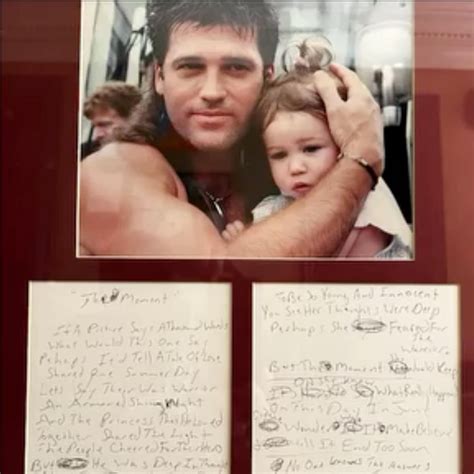 "The Moment"
If A Picture Says A Thousand Words
What Would This One Say
Perhaps It'd Tell A Tale Of Love
Shared One Summer Day
Lets Say There Was Warrior
An Armored Shining
And The Princess That He Loved
Together Shared The Light
The People Cheered
But He Was Deep In
To Be So Young And Innocent
You See Her Thoughts Were Deep
Perhaps She Feared For
The
Warrior
But This Moment Would Keep
What Really Happened
On This Day In June
Wonder If Make Believe
Will It End Too Soon
No One Answer